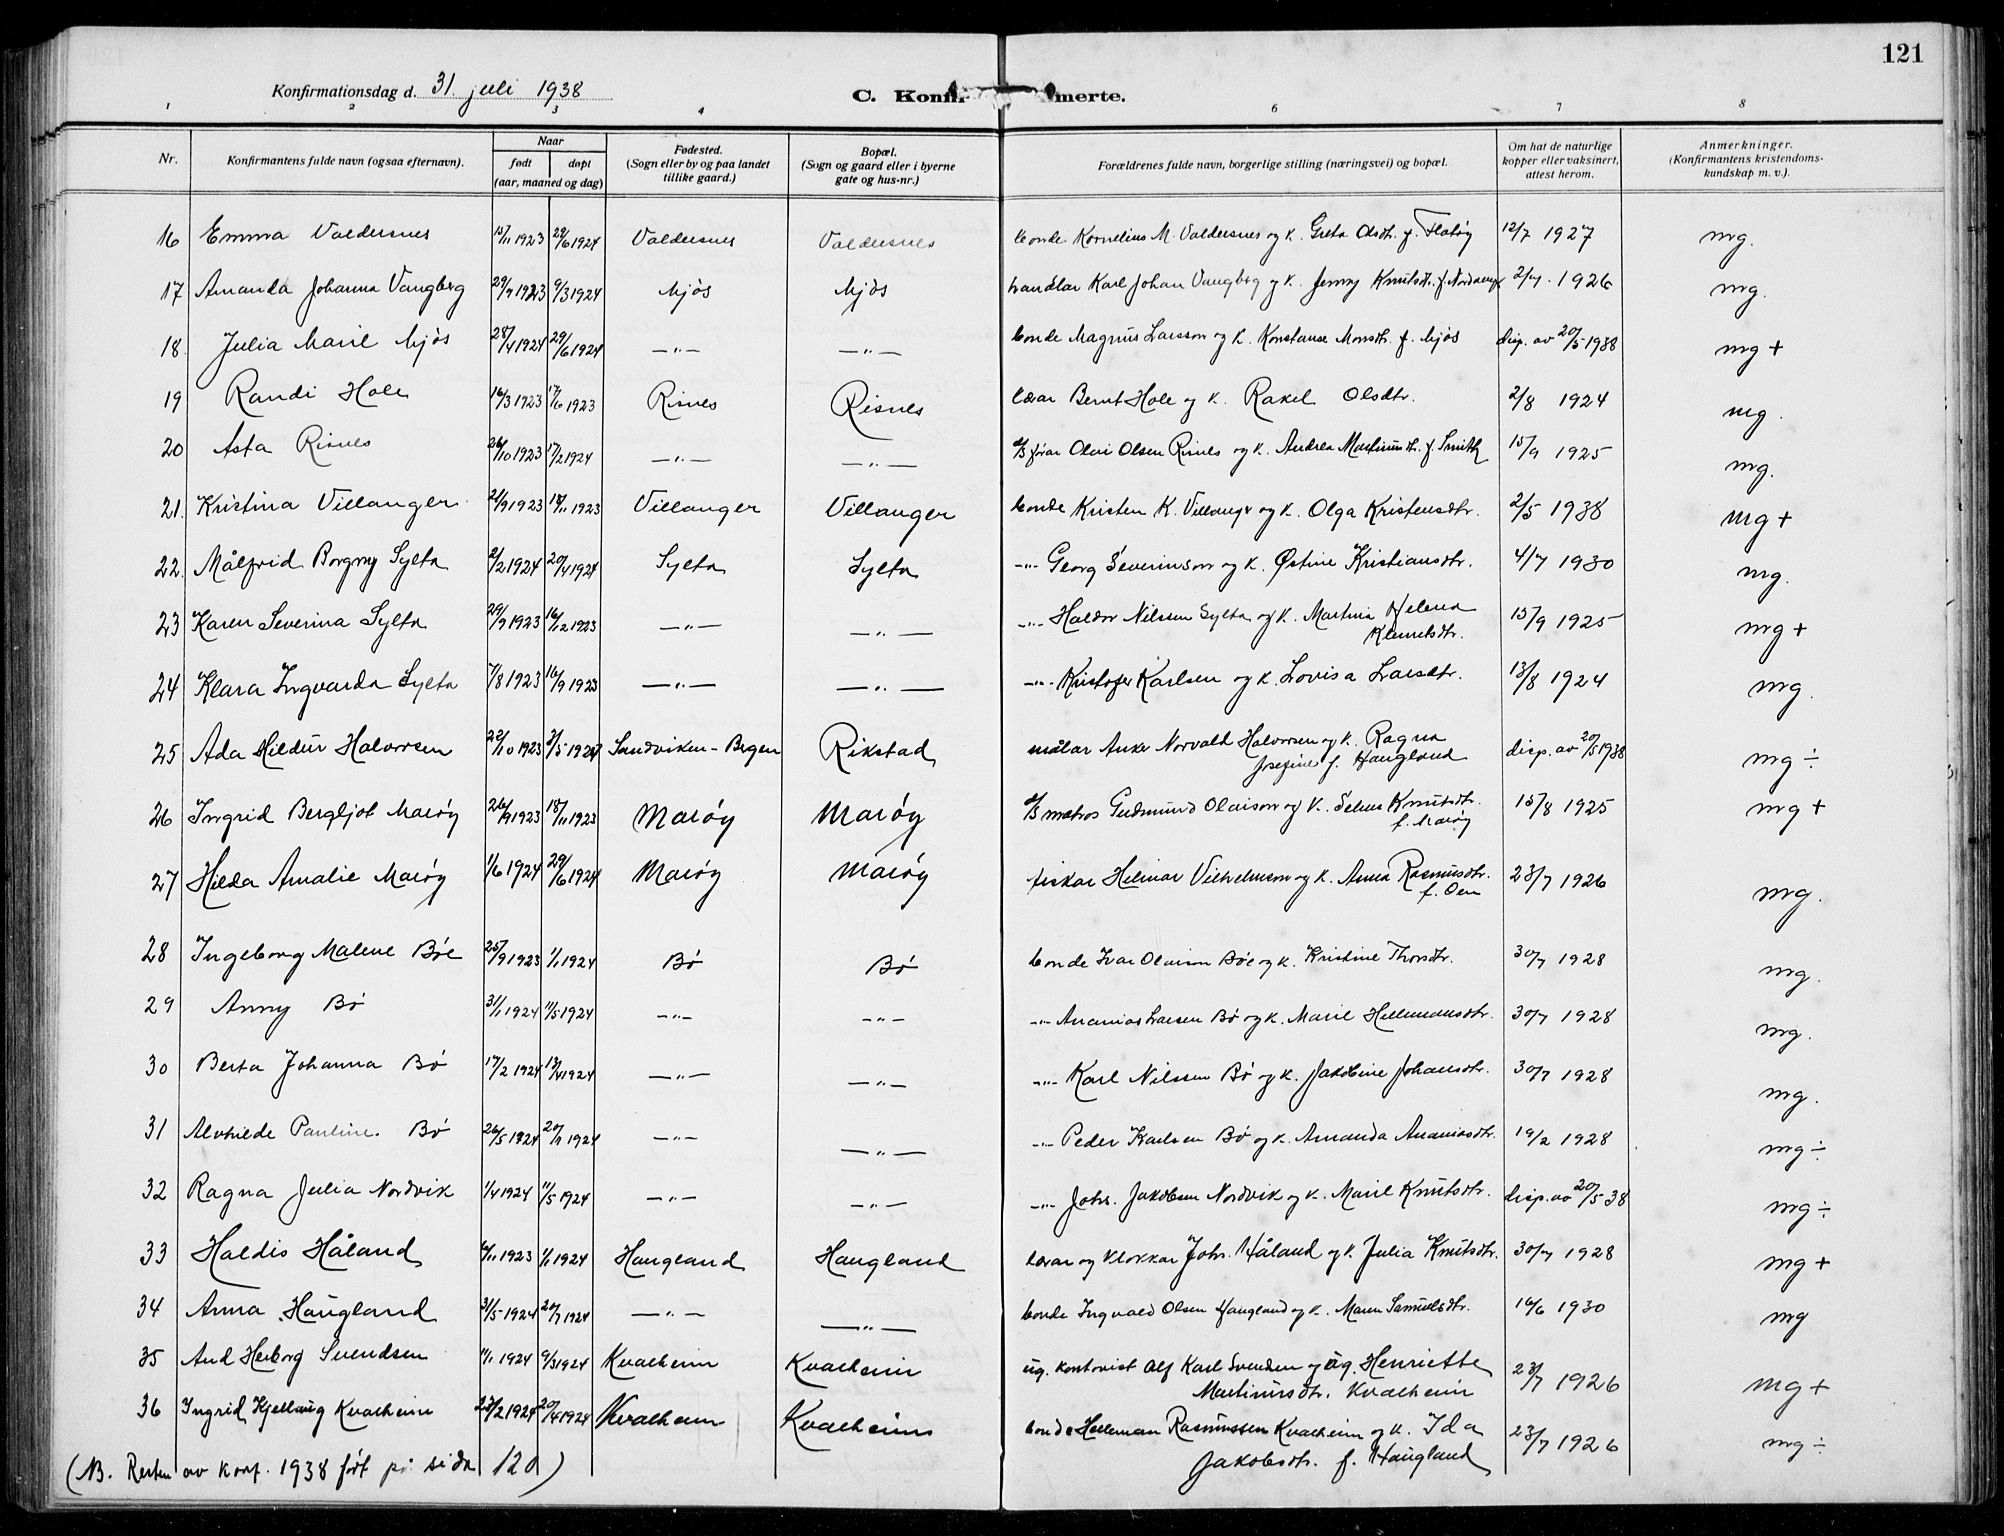 121
Konfirmationsdag d. 31. juli 1938
C. Konfir merte.
1 2 3 4 6 7 8
Nr. Konfirmantens fulde navn (ogsaa efternavn). Naar født døpt (aar, maaned og dag) Fødested. (Sogn eller by og paa landet tillike gaard.) Bopæl. (Sogn og gaard eller i byerne gate og hus-nr.) Forældrenes fulde navn, borgerlige stilling (næringsvei) og bopæl. Om hat de naturlige kopper eller vaksinert, attest herom. Anmerkninger. (Konfirmantens kristendoms-kundskap m. v.).
16 Emma Valdersnes 15/11 1923 29/6 1924 Valdersnes Valdersnes bonde Kornelius M. Valdersnes og k. Greta Olsdt. f. Flatøy 12/7 1927 mg.
17 Amanda Johanna Vangberg 29/9 1923 9/3 1924 Mjøs Mjøs handlar Karl Johan Vangberg og k. Jenny Knutsdt. f. 2/7. 1926 mg.
18. Julia Marie Mjøs 28/4 1924 29/6 1924 —"— —"— bonde Magnus Larsson og k. Konstanse Monsdt. f. Mjøs disp. av 20/5 1938 mg +
19 Randi Hole 16/3 1923 17/6 1923 Risnes Risnes lærar Bernt Hole og k. Rakel Olsdtr. 2/8 1924 mg.
20 Asta Risnes 26/10 1923 17/2 1924 —"— —"— d/s førar Olai Olsen Risnes og k. Andrea Martinusdtr. f. Smith 15/9 1925 mg.
21. Kristina Villanger 21/9 1923 18/11 1923 Villanger Villanger bonde Kristen K. Villanger og k. Olga Kristensdtr. 2/5 1938 mg +
22. Målfrid Borgny Sylta 2/2 1924 20/4 1924 Sylta Sylta —"— Georg Severinson og k. Østine Kristiansdtr. 4/7 1930 mg.
23 Karen Severina Sylta 29/9 1923 16/12 1923 —"— —"— —"— Haldor Nilssen Sylta og k. Martina Helena Klemetsdtr. 15/9 1925 mg +
24 Klara Ingvarda Sylta 7/8 1923 16/9 1923 —"— —"— —"— Kristofer Karlsen og k. Lovisa Larsdtr. 13/8 1924 mg.
25 Ada Hildur Halvorsen 22/10 1923 /5 1924 Sandviken - Bergen Rikstad målar Anker Norvald Halvorsen og k. Ragna Josefine f. Haugland disp. av 20/5 1938 mg ÷
26 Ingrid Bergljot Marøy 26/9 1923 18/11 1923 Marøy Marøy d/s matros Gudmund Olaison og k. Selma Knutsdtr. f. Marøy 15/8 1925 mg +
27 Hilda Amalie Marøy 1/6 1924 29/6 1924 Marøy Marøy fiskar Helmar Vilhelmson og k. Anna Rasmusdtr. f. Oen 23/7 1926 mg.
28 Ingeborg Malene Bøe 25/9 1923 1/1 1924 Bø Bø bonde Ivar Olaison Bøe og k. Kristine Thorsdtr. 30/7 1928 mg.
29 Anny Bø 31/1 1924 11/5 1924 —"— —"— —"— Ananias Larsen Bø og k. Marie Hellemansdtr. 30/7 1928 mg.
30 Berta Johanna Bø 17/2 1924 13/4 1924 —"— —"— —"— Karl Nilssen Bø og k. Jakobine Johansdtr. 30/7 1928 mg.
31 Alvhilde Pauline. Bø 26/5 1924 20/7 1924 —"— —"— —"— Peder Karlsen Bø og k. Amanda Ananiasdtr. 19/2 1928 mg ÷
32 Ragna Julia Nordvik 1/4 1924 11/5 1924 —"— —"— —"— Johs. Jakobsen Nordvik og k. Marie Knutsdtr. disp. av 20/5 38 mg ÷
33 Haldis Håland /11 1923 1/1 1924 Haugland Haugland lærar og klokkar Johs. Håland og k. Julia Knutsdtr. 30/7 1928 mg +
34 Anna Haugland 31/5 1924 20/7 1924 —"— —"— bonde Ingvald Olsen Haugland og k. Maren Samuelsdtr. 16/6 1930 mg
35 Aud Herborg Svendsen 11/1 1924 9/3 1924 Kvalheim Kvalheim ug. kontorist Alf Karl Svendsen og ug. Henriette Martinusdtr. Kvalheim 23/7 1926 mg +
36 Ingrid Kjellaug Kvalheim 23/2 1924 20/4 1924 Kvalheim Kvalheim bonde Helleman Rasmussen Kvalheim og k. Ida Jakobsdtr. f. Haugland 23/7 1926 mg ÷
(NB. Resten av konf. 1938 ført på sida 120)